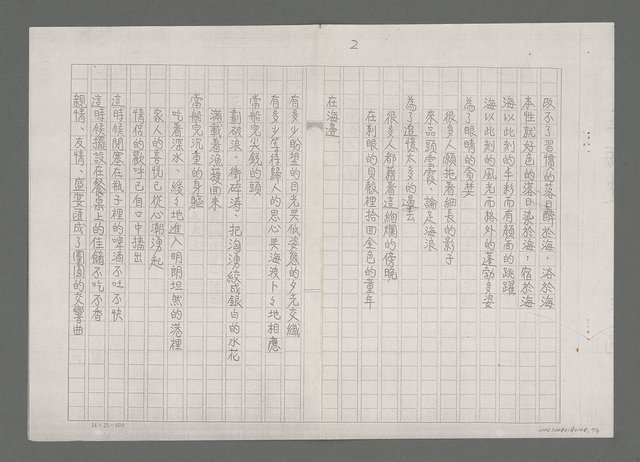 2
改不了習慣的落日醉於海，沐於海
本性就好色的落日染於海，宿於海
海以此刻的手彩而有顏面的跳躍
海以此刻的風光而格外的蓬勃多姿
為了眼睛的貪婪
很多人願拖著細長的影子
來品頭雲霞、論足海浪
為了追憶太多的過去
很多人都藉著這絢爛的傍晚
在剌眼的貝殼裡拾回金色的童年
在海邊
有多少盼望的目光與低姿態的夕光交織
有多少等待歸人的思心與海波卜卜地相應
當船兒尖銳的頭
劃破浪、衝碎濤、把洶湧絞成銀白的水花
滿載着漁獲回來
當船兒沉重的身軀
吃着深水、緩緩地進入明朗坦然的港裡
家人的喜悅已從心潮湧起
情侶的歡呼已自口中播出
這時候閉塞在瓶子裡的啤酒不吐不快
這時候擺設在餐桌上的佳餚不吃不香
親情、友情、盛宴匯成了團圓的交響曲
24×25=600